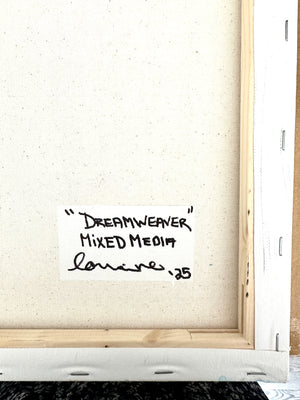 "DREAMWEAVER"
MIXED MEDIA
Lorraine '25